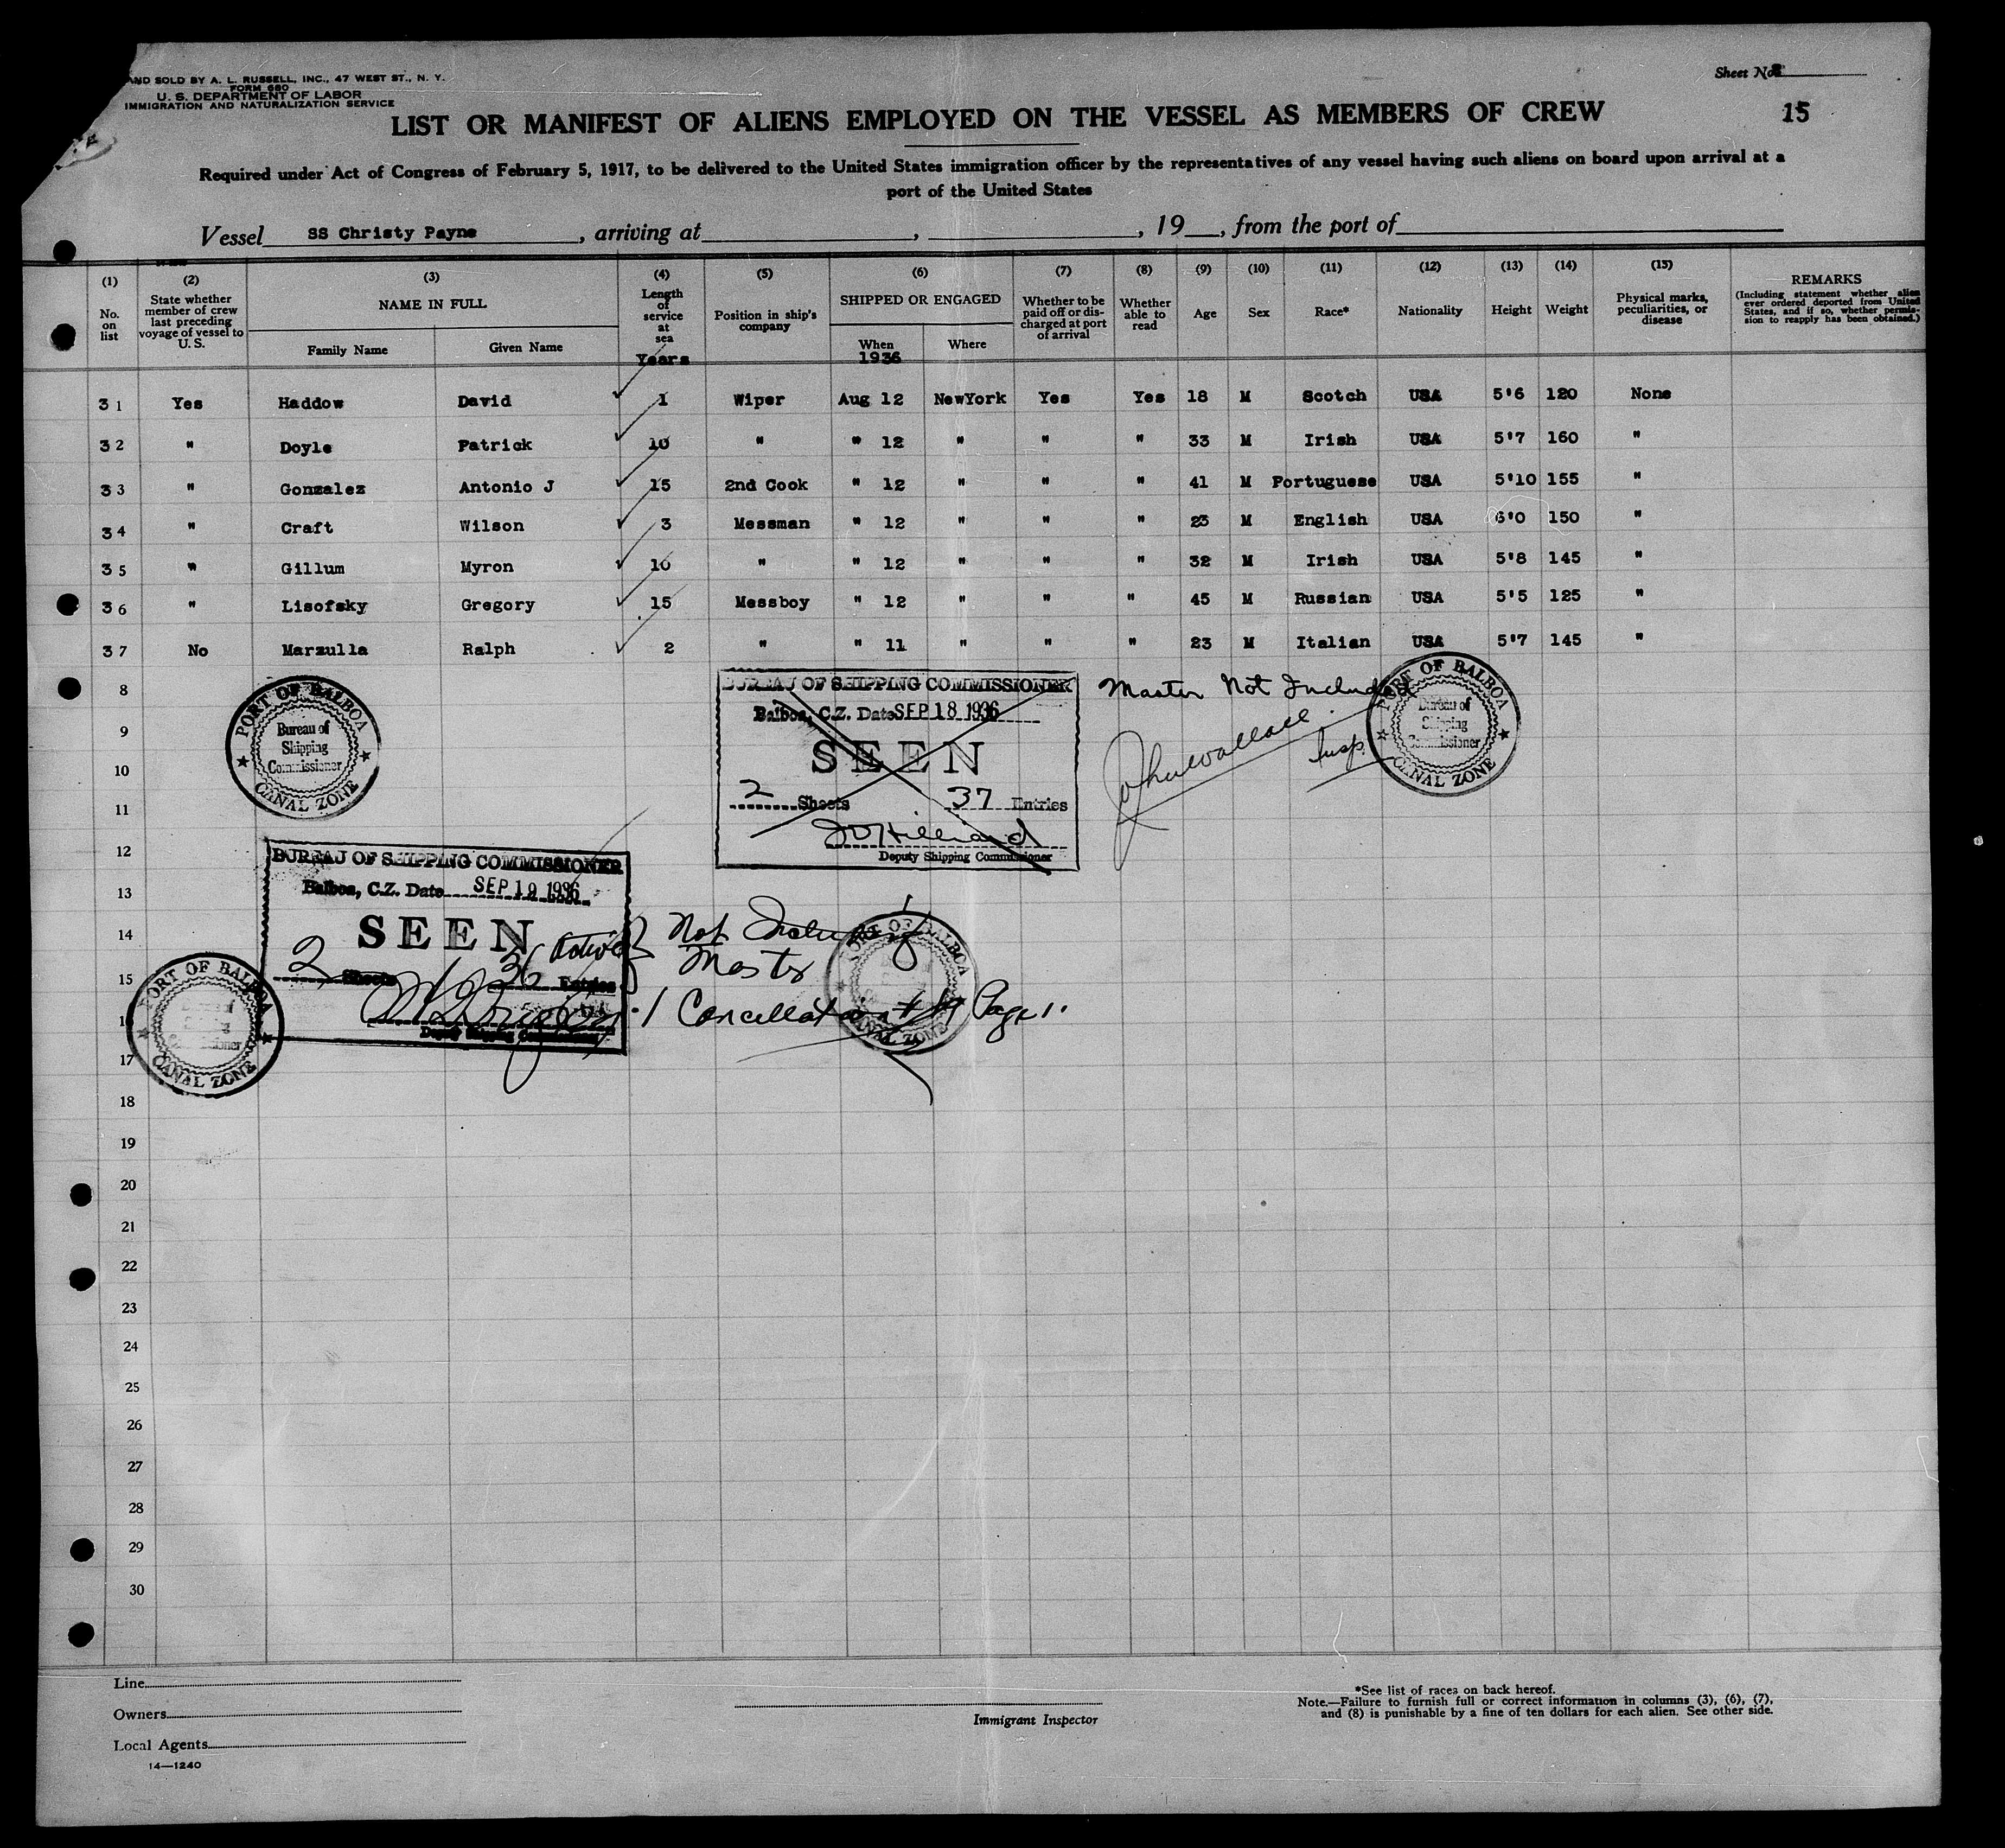 AND SOLD BY A. L. RUSSELL, INC., 47 WEST ST., N. Y.
FORM 680
U. S. DEPARTMENT OF LABOR
IMMIGRATION AND NATURALIZATION SERVICE
Sheet No.
15
LIST OR MANIFEST OF ALIENS EMPLOYED ON THE VESSEL AS MEMBERS OF CREW
Required under Act of Congress of February 5, 1917, to be delivered to the United States immigration officer by the representatives of any vessel having such aliens on board upon arrival at a
port of the United States
Vessel SS Christy Payne, arriving at , , 19 , from the port of
(1) No. on list
(2) State whether member of crew last preceding voyage of vessel to U. S.
(3) NAME IN FULL Family Name Given Name
(4) Length of service at sea Years
(5) Position in ship's company
(6) SHIPPED OR ENGAGED When 1936 Where
(7) Whether to be paid off or discharged at port of arrival
(8) Whether able to read
(9) Age
(10) Sex
(11) Race*
(12) Nationality
(13) Height
(14) Weight
(15) Physical marks, peculiarities, or disease
REMARKS (Including statement whether alien ever ordered deported from United States, and if so, whether permission to reapply has been obtained.)
31 Yes Haddow David 1 Wiper Aug 12 NewYork Yes Yes 18 M Scotch USA 5'6 120 None
32 " Doyle Patrick 10 " " 12 " " " 33 M Irish USA 5'7 160 "
33 " Gonzalez Antonio J 15 2nd Cook " 12 " " " 41 M Portuguese USA 5'10 155 "
34 " Craft Wilson 3 Messman " 12 " " " 23 M English USA 6'0 150 "
35 " Gillum Myron 10 " " 12 " " " 32 M Irish USA 5'8 145 "
36 " Lisofsky Gregory 15 Messboy " 12 " " " 45 M Russian USA 5'5 125 "
37 No Marzulla Ralph 2 " " 11 " " " 23 M Italian USA 5'7 145 "
8
9
10
11
12
13
14
15
16
17
18
19
20
21
22
23
24
25
26
27
28
29
30
PORT OF BALBOA
Bureau of
Shipping
Commissioner
CANAL ZONE
BUREAU OF SHIPPING COMMISSIONER
Balboa, C.Z. Date SEP 18 1936
SEEN
2 Sheets 37 Entries
Hilliard
Deputy Shipping Commissioner
Master Not Included
John Wallace
Insp.
PORT OF BALBOA
Bureau of
Shipping
Commissioner
CANAL ZONE
BUREAU OF SHIPPING COMMISSIONER
Balboa, C.Z. Date SEP 19 1936
SEEN
2 Sheets 36 Entries
Deputy Shipping Commissioner
Not Including
Master
1 Cancellation Page 1
PORT OF BALBOA
CANAL ZONE
PORT OF BALBOA
CANAL ZONE
Line
Owners
Local Agents
14—1240
Immigrant Inspector
*See list of races on back hereof.
Note.—Failure to furnish full or correct information in columns (3), (6), (7),
and (8) is punishable by a fine of ten dollars for each alien. See other side.